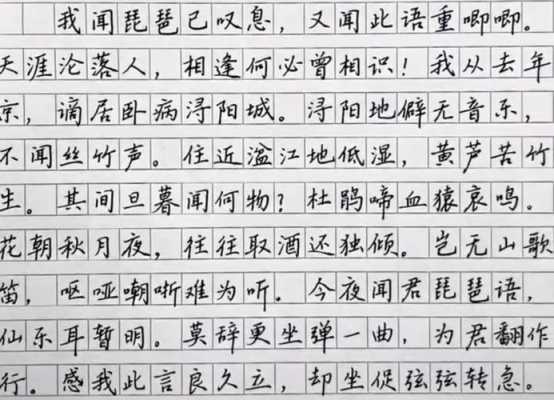 我闻琵琶已叹息，又闻此语重唧唧。
天涯沦落人，相逢何必曾相识！我从去年
京，谪居卧病浔阳城。浔阳地僻无音乐，
不闻丝竹声。住近湓江地低湿，黄芦苦竹
生。其间旦暮闻何物？杜鹃啼血猿哀鸣。
花朝秋月夜，往往取酒还独倾。岂无山歌
笛，呕哑嘲哳难为听．今夜闻君琵琶语，
仙乐耳暂明。莫辞更坐弹一曲，为君翻作
行。感我此言良久立，却坐促弦弦转急。